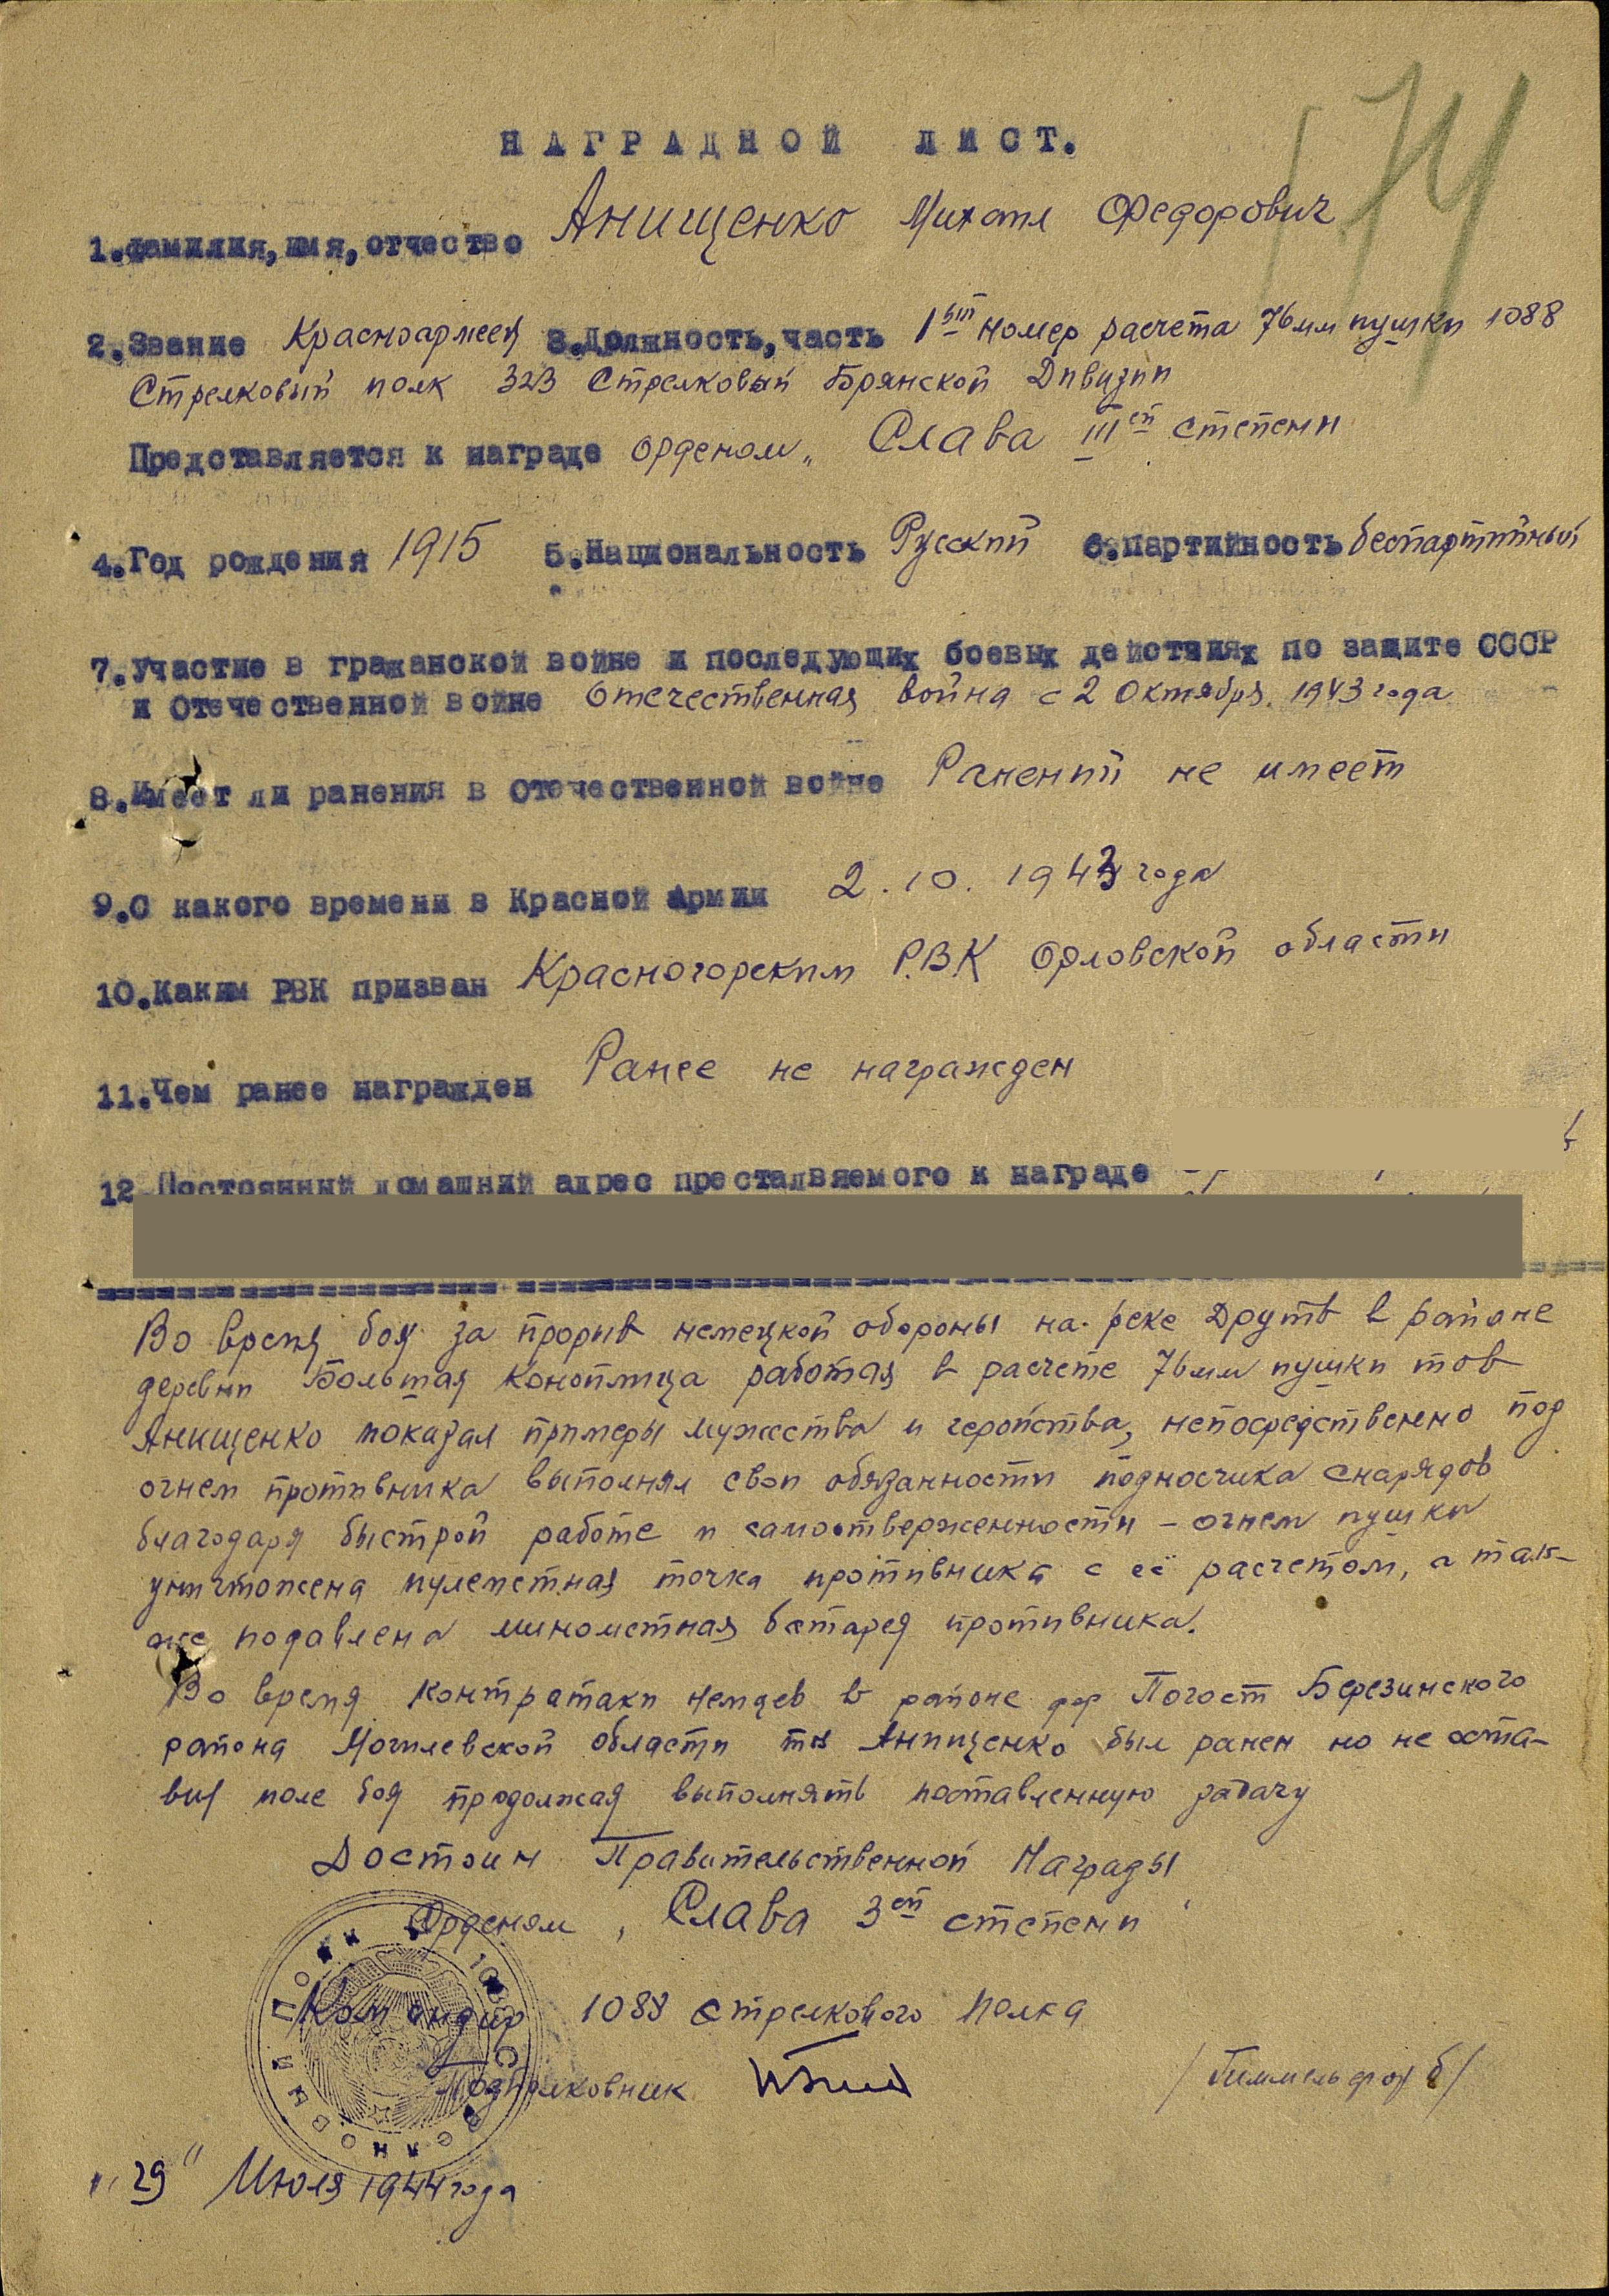 174
НАГРАДНОЙ ЛИСТ.
1.Фамилия,имя,отчество Анищенко Михаил Федорович
2.Звание Красноармеец 3.Должность,часть 1ый номер расчета 76мм пушки 1088
Стрелковый полк 323 Стрелковый Брянской Дивизии
Представляется к награде орденом „ Слава IIIей степени
4.Год рождения 1915 5.Национальность Русский 6.партийность беспартийный
7.Участие в гражанской войне и последующих боевых действиях по защите СССР
и Отечественной войне Отечественная война с 2 Октября 1943 года
8.Имеет ли ранения в Отечественной войне Ранений не имеет
9.С какого времени в Красной Армии 2.10.1943 года
10.Каким РВК призван Красногорским Р.В.К Орловской области
11.Чем ранее награжден Ранее не награжден
12.Постоянный домашний адрес престалвяемого к награде
Во время боя за прорыв немецкой обороны на реке Друть в районе
деревни Большая Коноплица работая в расчете 76мм пушки тов
Анищенко показал примеры мужества и геройства, непосредственно под
огнем противника выполнял свои обязанности подносчика снарядов
благодаря быстрой работе и самоотверженности - огнем пушки
уничтожена пулеметная точка противника с её расчетом, а так-
же подавлена минометная батарея противника.
Во время контратаки немцев в районе дер Погост Березинского
района Могилевской области тов Анищенко был ранен но не оста-
вил поле боя продолжая выполнять поставленную задачу
Достоин Правительственной Награды
Орденом „ Слава 3ей степени
Командир 1088 стрелкового полка
Подполковник /Гиммельфарб/
„29" Июля 1944 года